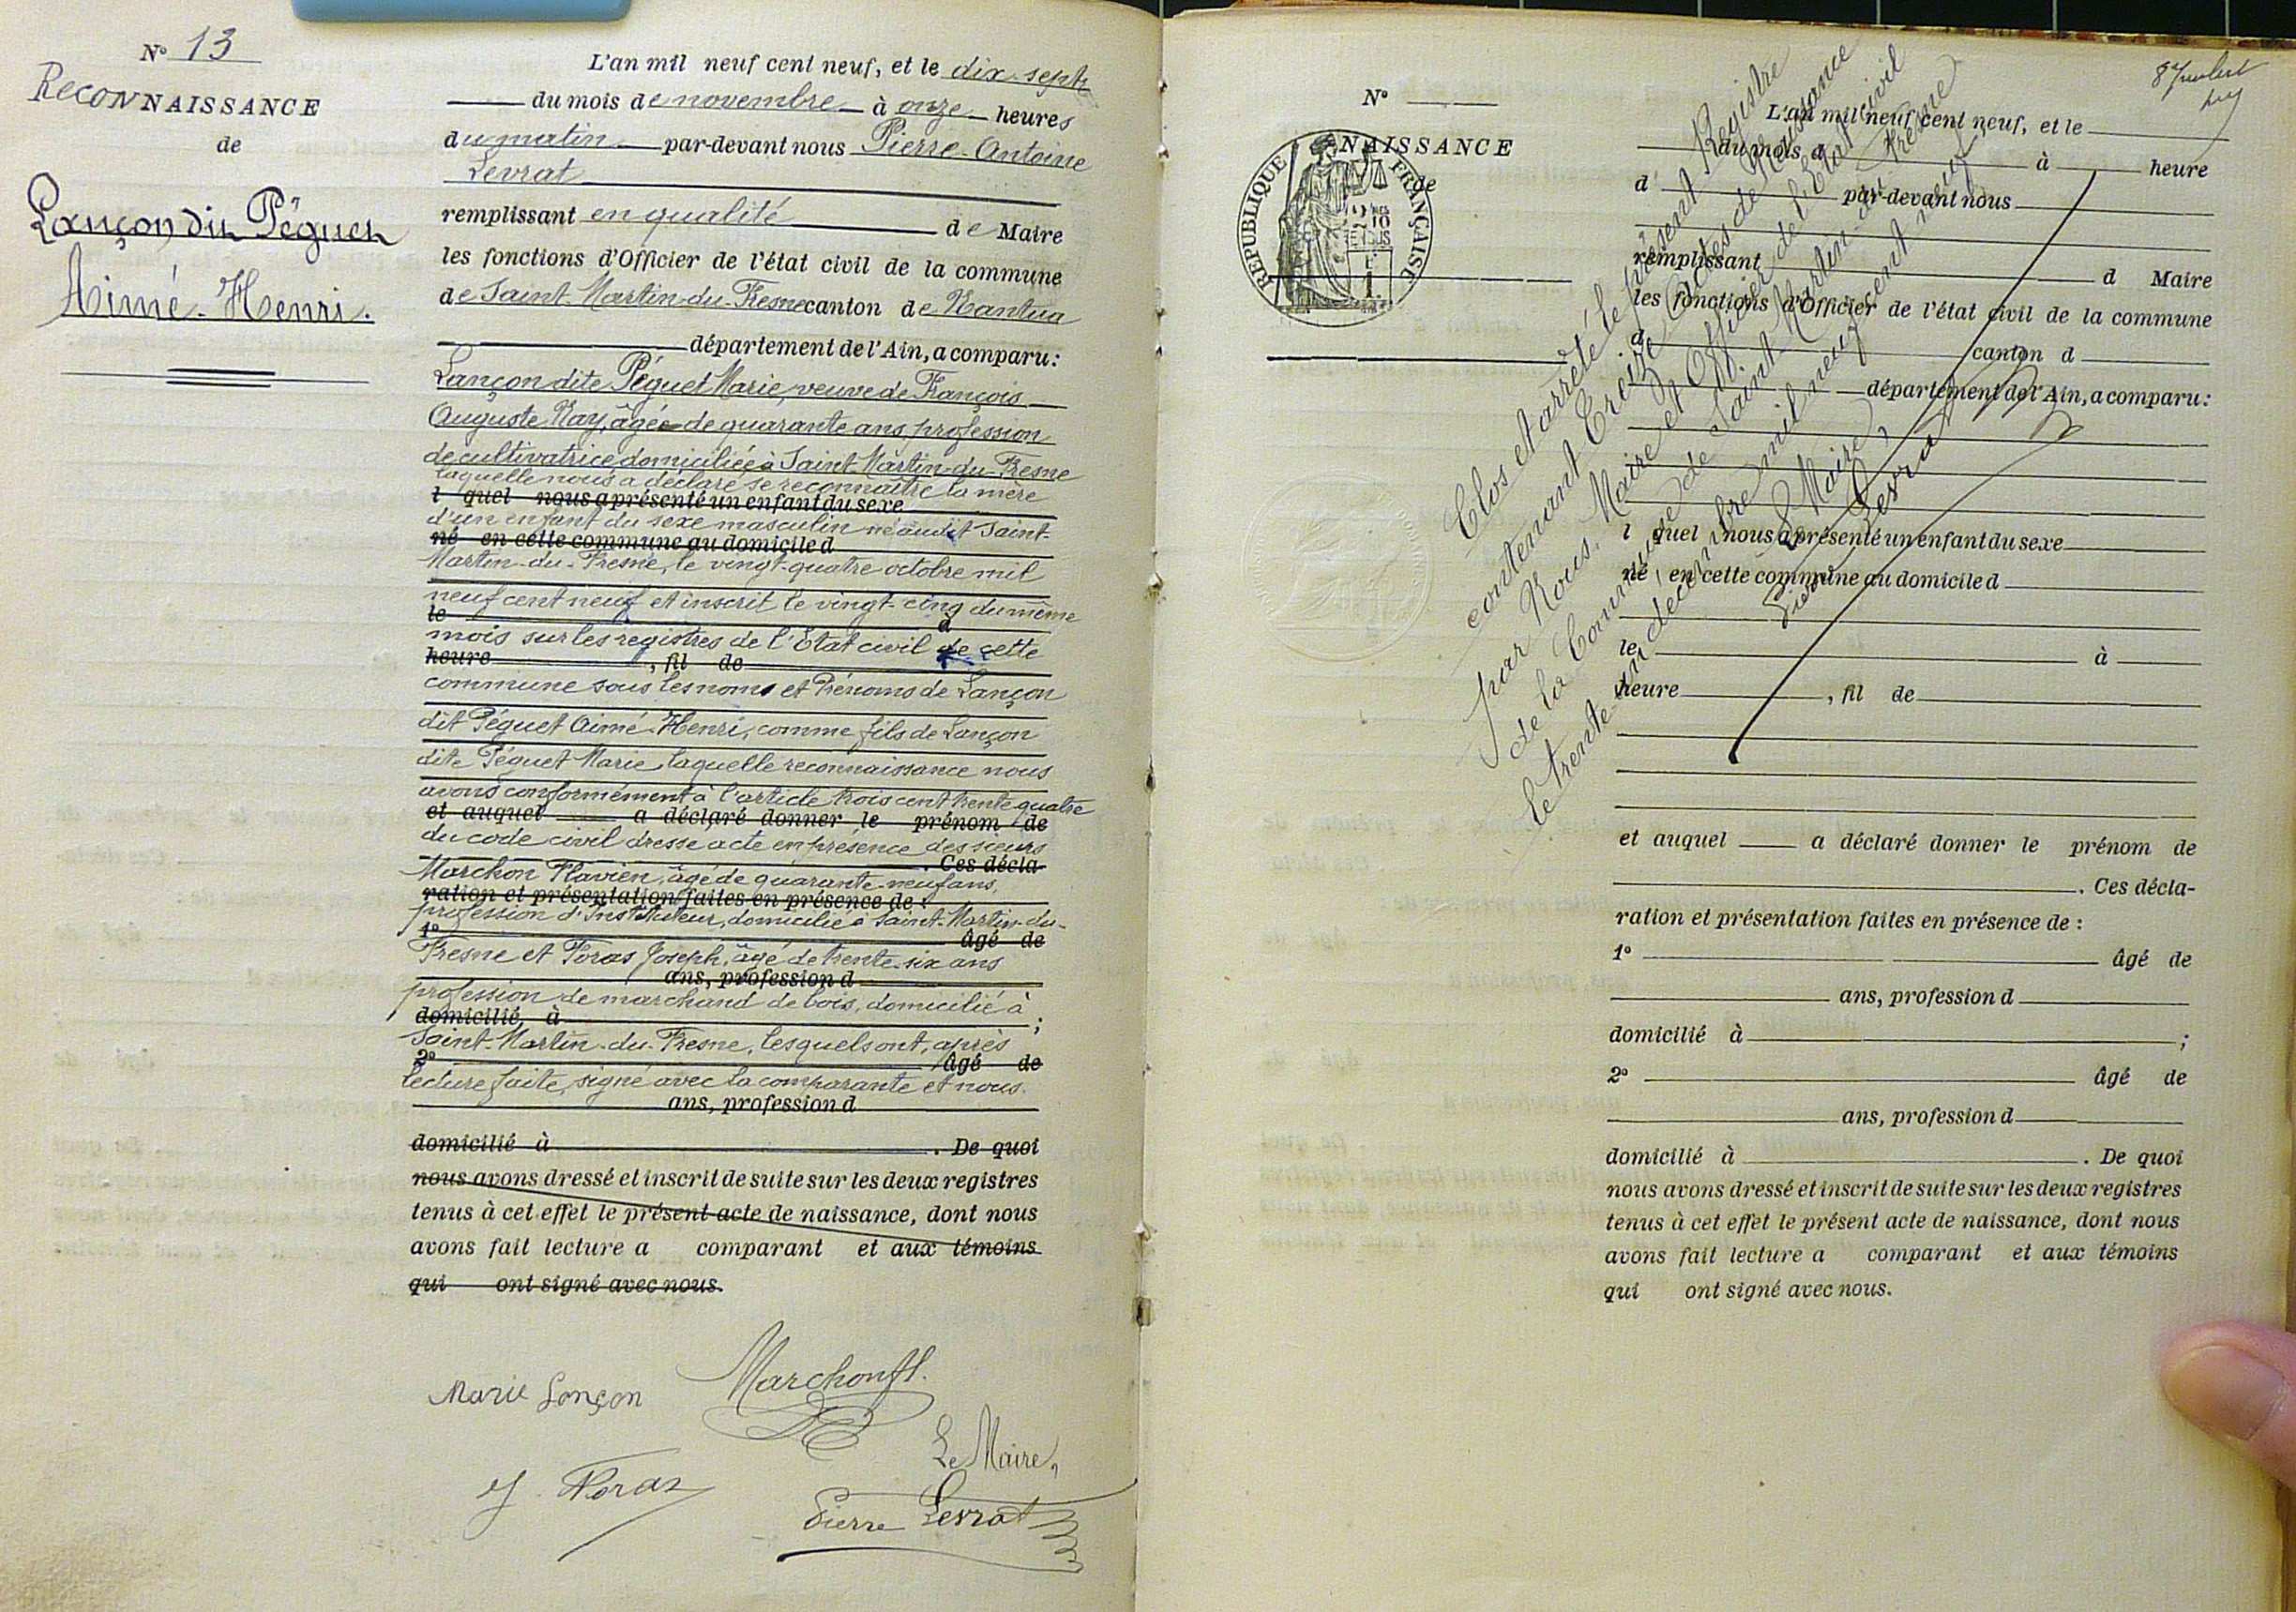 N° 13
RECONNAISSANCE
de
Lançon dit Péguet
Aimé-Henri.
L'an mil neuf cent neuf, et le dix-sept
du mois de novembre à onze heures
du matin par-devant nous Pierre-Antoine
Levrat
remplissant en qualité de Maire
les fonctions d'Officier de l'état civil de la commune
de Saint-Martin-du-Fresne canton de Nantua
département de l'Ain, a comparu:
Lançon dite Péguet Marie, veuve de François
Auguste Nay, âgée de quarante ans, profession
de cultivatrice domiciliée à Saint-Martin-du-Fresne
laquelle nous a déclaré se reconnaître la mère
l quel nous a présenté un enfant du sexe
d'un enfant du sexe masculin né audit Saint-
né en cette commune au domicile d
Martin-du-Fresne, le vingt-quatre octobre mil
neuf cent neuf et inscrit le vingt-cinq du même
le à
mois sur les registres de l'Etat civil de cette
heure , fil de
commune sous les noms et Prénoms de Lançon
dit Péguet Aimé-Henri, comme fils de Lançon
dite Péguet Marie, laquelle reconnaissance nous
avons conformément à l'article trois cent trente quatre
et auquel a déclaré donner le prénom de
du code civil dressé acte en présence des sieurs
. Ces décla-
Marchon Flavien, âgé de quarante-neuf ans,
ration et présentation faites en présence de :
profession d'Instituteur, domicilié à Saint-Martin-du-
1° âgé de
Fresne et Foras Joseph, âgé de trente-six ans
ans, profession d
profession de marchand de bois, domicilié à
domicilié à ;
Saint-Martin-du-Fresne, lesquels ont, après
2° âgé de
lecture faite, signé avec la comparante et nous.
ans, profession d
domicilié à . De quoi
nous avons dressé et inscrit de suite sur les deux registres
tenus à cet effet le présent acte de naissance, dont nous
avons fait lecture a comparant et aux témoins
qui ont signé avec nous.
Marie Lonçon
Marchon fl.
J. Foras
Le Maire,
Pierre Levrat
N°
NAISSANCE
de
REPUBLIQUE FRANÇAISE
L'an mil neuf cent neuf, et le
du mois d à heure
d par-devant nous
remplissant d Maire
les fonctions d'Officier de l'état civil de la commune
d canton d
département de l'Ain, a comparu:
l quel nous a présenté un enfant du sexe
né en cette commune au domicile d
le à
heure , fil de
et auquel a déclaré donner le prénom de
. Ces décla-
ration et présentation faites en présence de :
1° âgé de
ans, profession d
domicilié à ;
2° âgé de
ans, profession d
domicilié à . De quoi
nous avons dressé et inscrit de suite sur les deux registres
tenus à cet effet le présent acte de naissance, dont nous
avons fait lecture a comparant et aux témoins
qui ont signé avec nous.
Clos et arrêté le présent Registre
contenant treize actes de Naissance
par Nous, Maire et Officier de l'Etat civil
de la Commune de Saint-Martin-du-Fresne
le trente un décembre mil neuf cent neuf.
Le Maire,
Pierre Levrat